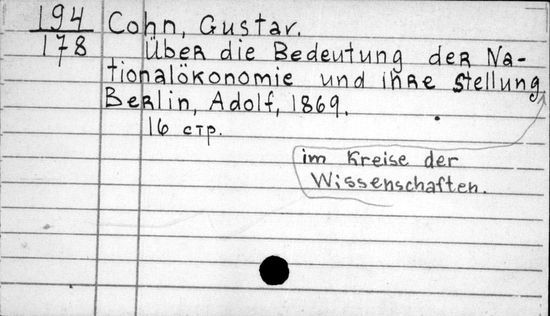 194
178
Cohn, Gustav.
Über die Bedeutung der Na-
tionalökonomie und ihre Stellung
Berlin, Adolf, 1869.
16 стр.
im Kreise der
Wissenschaften.